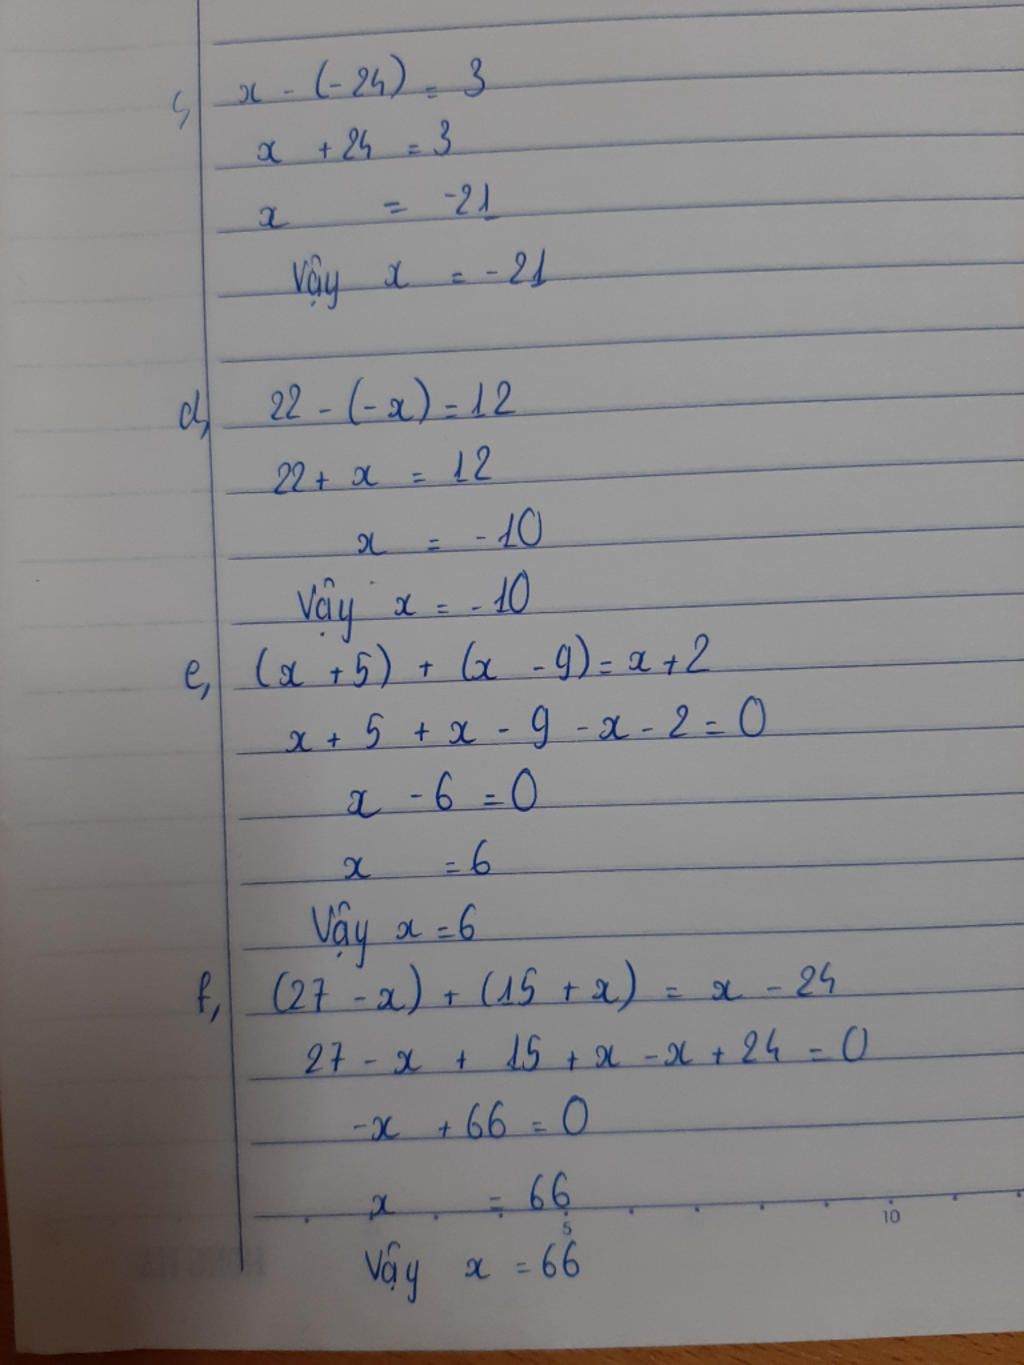 c, x - (-24) = 3
x + 24 = 3
x = -21
Vậy x = -21
d, 22 - (-x) = 12
22 + x = 12
x = -10
Vậy x = -10
e, (x + 5) + (x - 9) = x + 2
x + 5 + x - 9 - x - 2 = 0
x - 6 = 0
x = 6
Vậy x = 6
f, (27 - x) + (15 + x) = x - 24
27 - x + 15 + x - x + 24 = 0
-x + 66 = 0
x = 66
5 10
Vậy x = 66